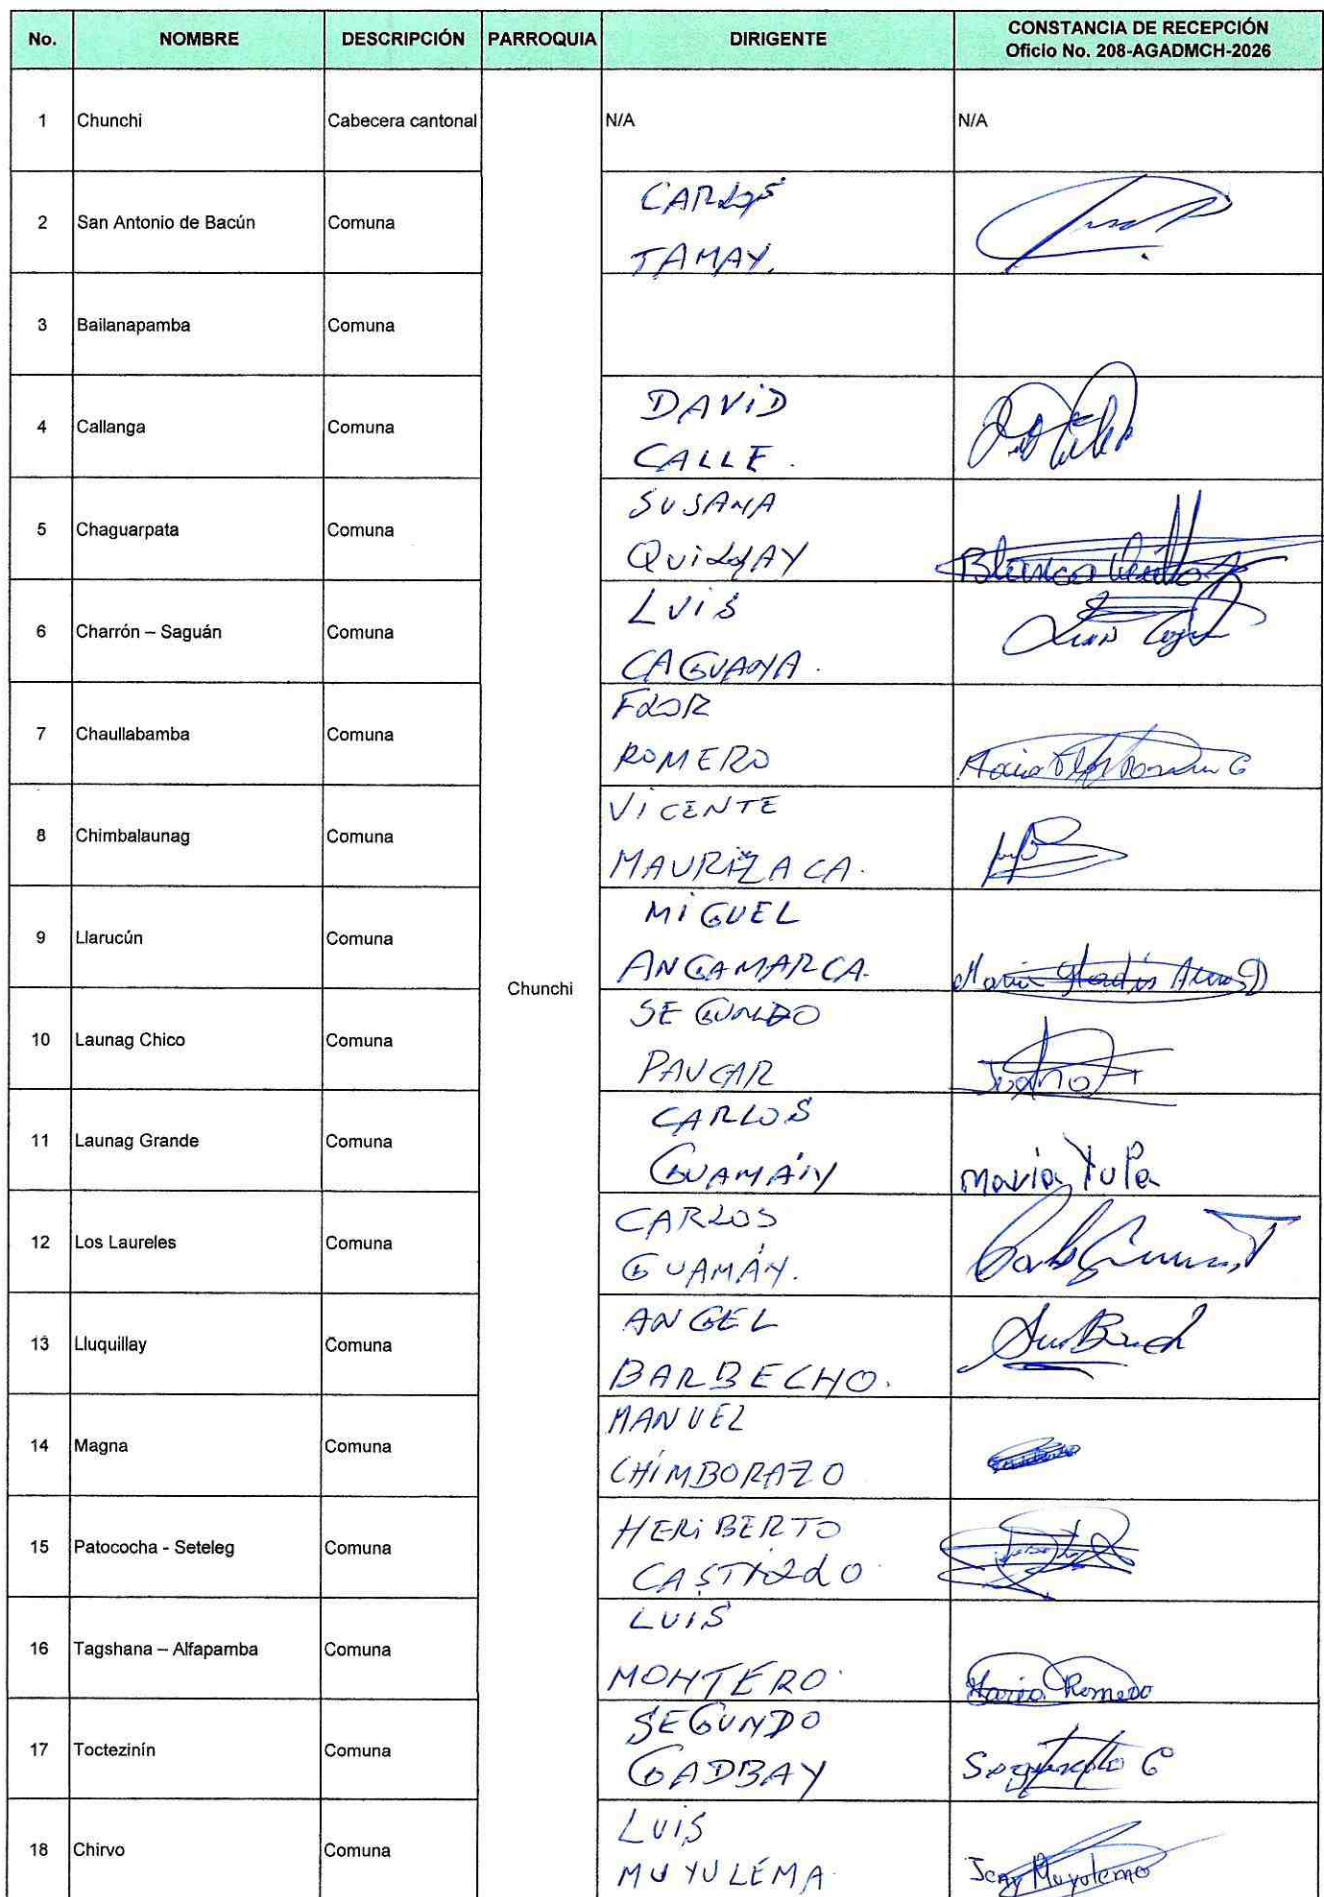 No. NOMBRE DESCRIPCIÓN PARROQUIA DIRIGENTE CONSTANCIA DE RECEPCIÓN
Oficio No. 208-AGADMCH-2026
1 Chunchi Cabecera cantonal N/A N/A
2 San Antonio de Bacún Comuna CARLOS
TAMAY.
3 Bailanapamba Comuna
4 Callanga Comuna DAVID
CALLE.
5 Chaguarpata Comuna SUSANA
QUILLAY Blanca
6 Charrón – Saguán Comuna LUIS
CAGUANA. Luis
7 Chaullabamba Comuna FLOR
ROMERO
8 Chimbalaunag Comuna VICENTE
MAURIZACA.
9 Llarucún Comuna MIGUEL
ANGAMARCA. Maria Gladis
Chunchi
10 Launag Chico Comuna SEGUNDO
PAUCAR
11 Launag Grande Comuna CARLOS
GUAMÁN maria Yupa
12 Los Laureles Comuna CARLOS
GUAMÁN.
13 Lluquillay Comuna ANGEL
BARBECHO.
14 Magna Comuna MANUEL
CHIMBORAZO
15 Patococha - Seteleg Comuna HERIBERTO
CASTILLO
16 Tagshana – Alfapamba Comuna LUIS
MONTERO. Maria Romero
17 Toctezinín Comuna SEGUNDO
GADBAY Segundo G
18 Chirvo Comuna LUIS
MUYULEMA Jeny Muyulema